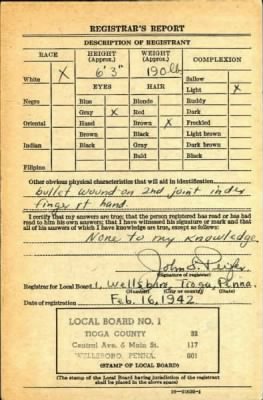 REGISTRAR'S REPORT
DESCRIPTION OF REGISTRANT
RACE HEIGHT (Approx.) WEIGHT (Approx.) COMPLEXION
White X 6' 3" 190 lb Sallow
EYES HAIR Light X
Negro Blue Blonde Ruddy
Gray X Red Dark
Oriental Hazel Brown X Freckled
Brown Black Light brown
Indian Black Gray Dark brown
Bald Black
Filipino
Other obvious physical characteristics that will aid in identification
bullet wound on 2nd joint index
finger rt hand.
I certify that my answers are true; that the person registered has read or has had
read to him his own answers; that I have witnessed his signature or mark and that
all of his answers of which I have knowledge are true, except as follows:
None to my knowledge.
John S.
Registrar for Local Board 1, Wellsboro, Tioga, Penna.
(Number) (City or county) (State)
Date of registration Feb. 16, 1942
LOCAL BOARD NO. 1
TIOGA COUNTY 82
Central Ave. & Main St. 117
WELLSBORO, PENNA. 001
(STAMP OF LOCAL BOARD)
(The stamp of the Local Board having jurisdiction of the registrant
shall be placed in the above space)